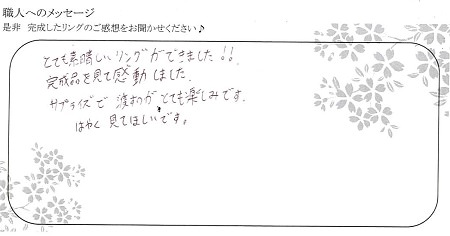 職人へのメッセージ
是非 完成したリングのご感想をお聞かせください♪
とても素晴しいリングができました!!
完成品を見て感動しました.
サプライズで渡すのがとても楽しみです.
はやく見てほしいです。